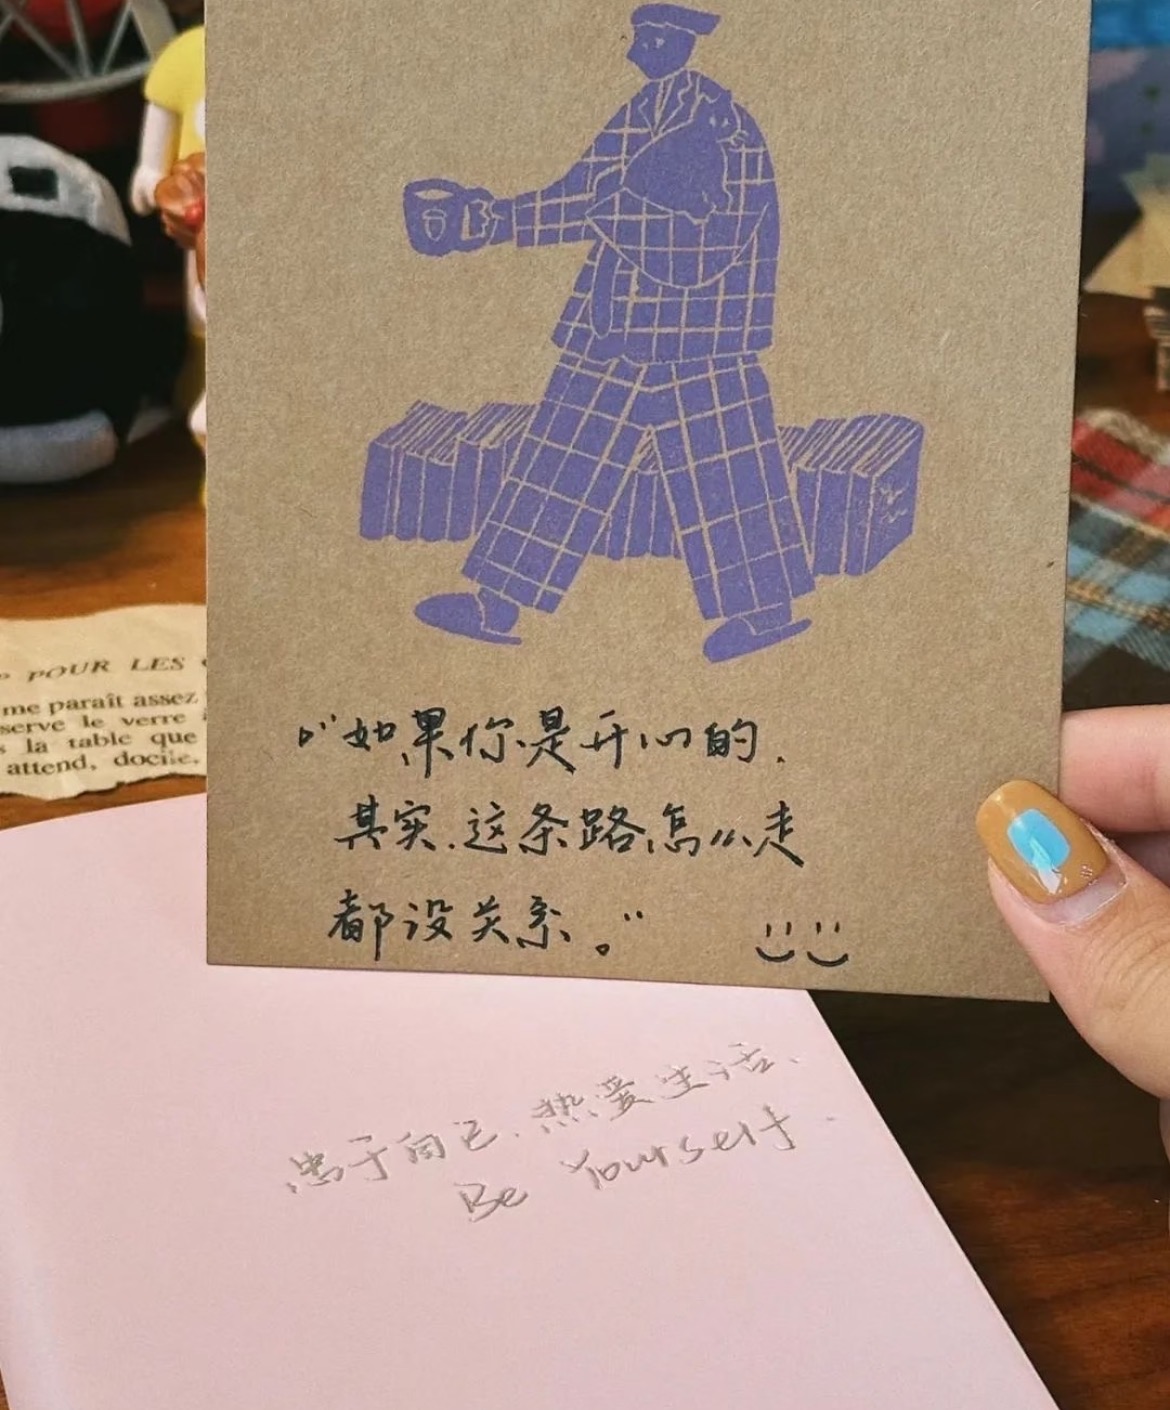 POUR LES
me paraît assez
serve le verre
la table que
attend, docile,
“如果你是开心的.
其实.这条路,怎么走
都没关系。”
忠于自己、热爱生活、
Be Yourself.